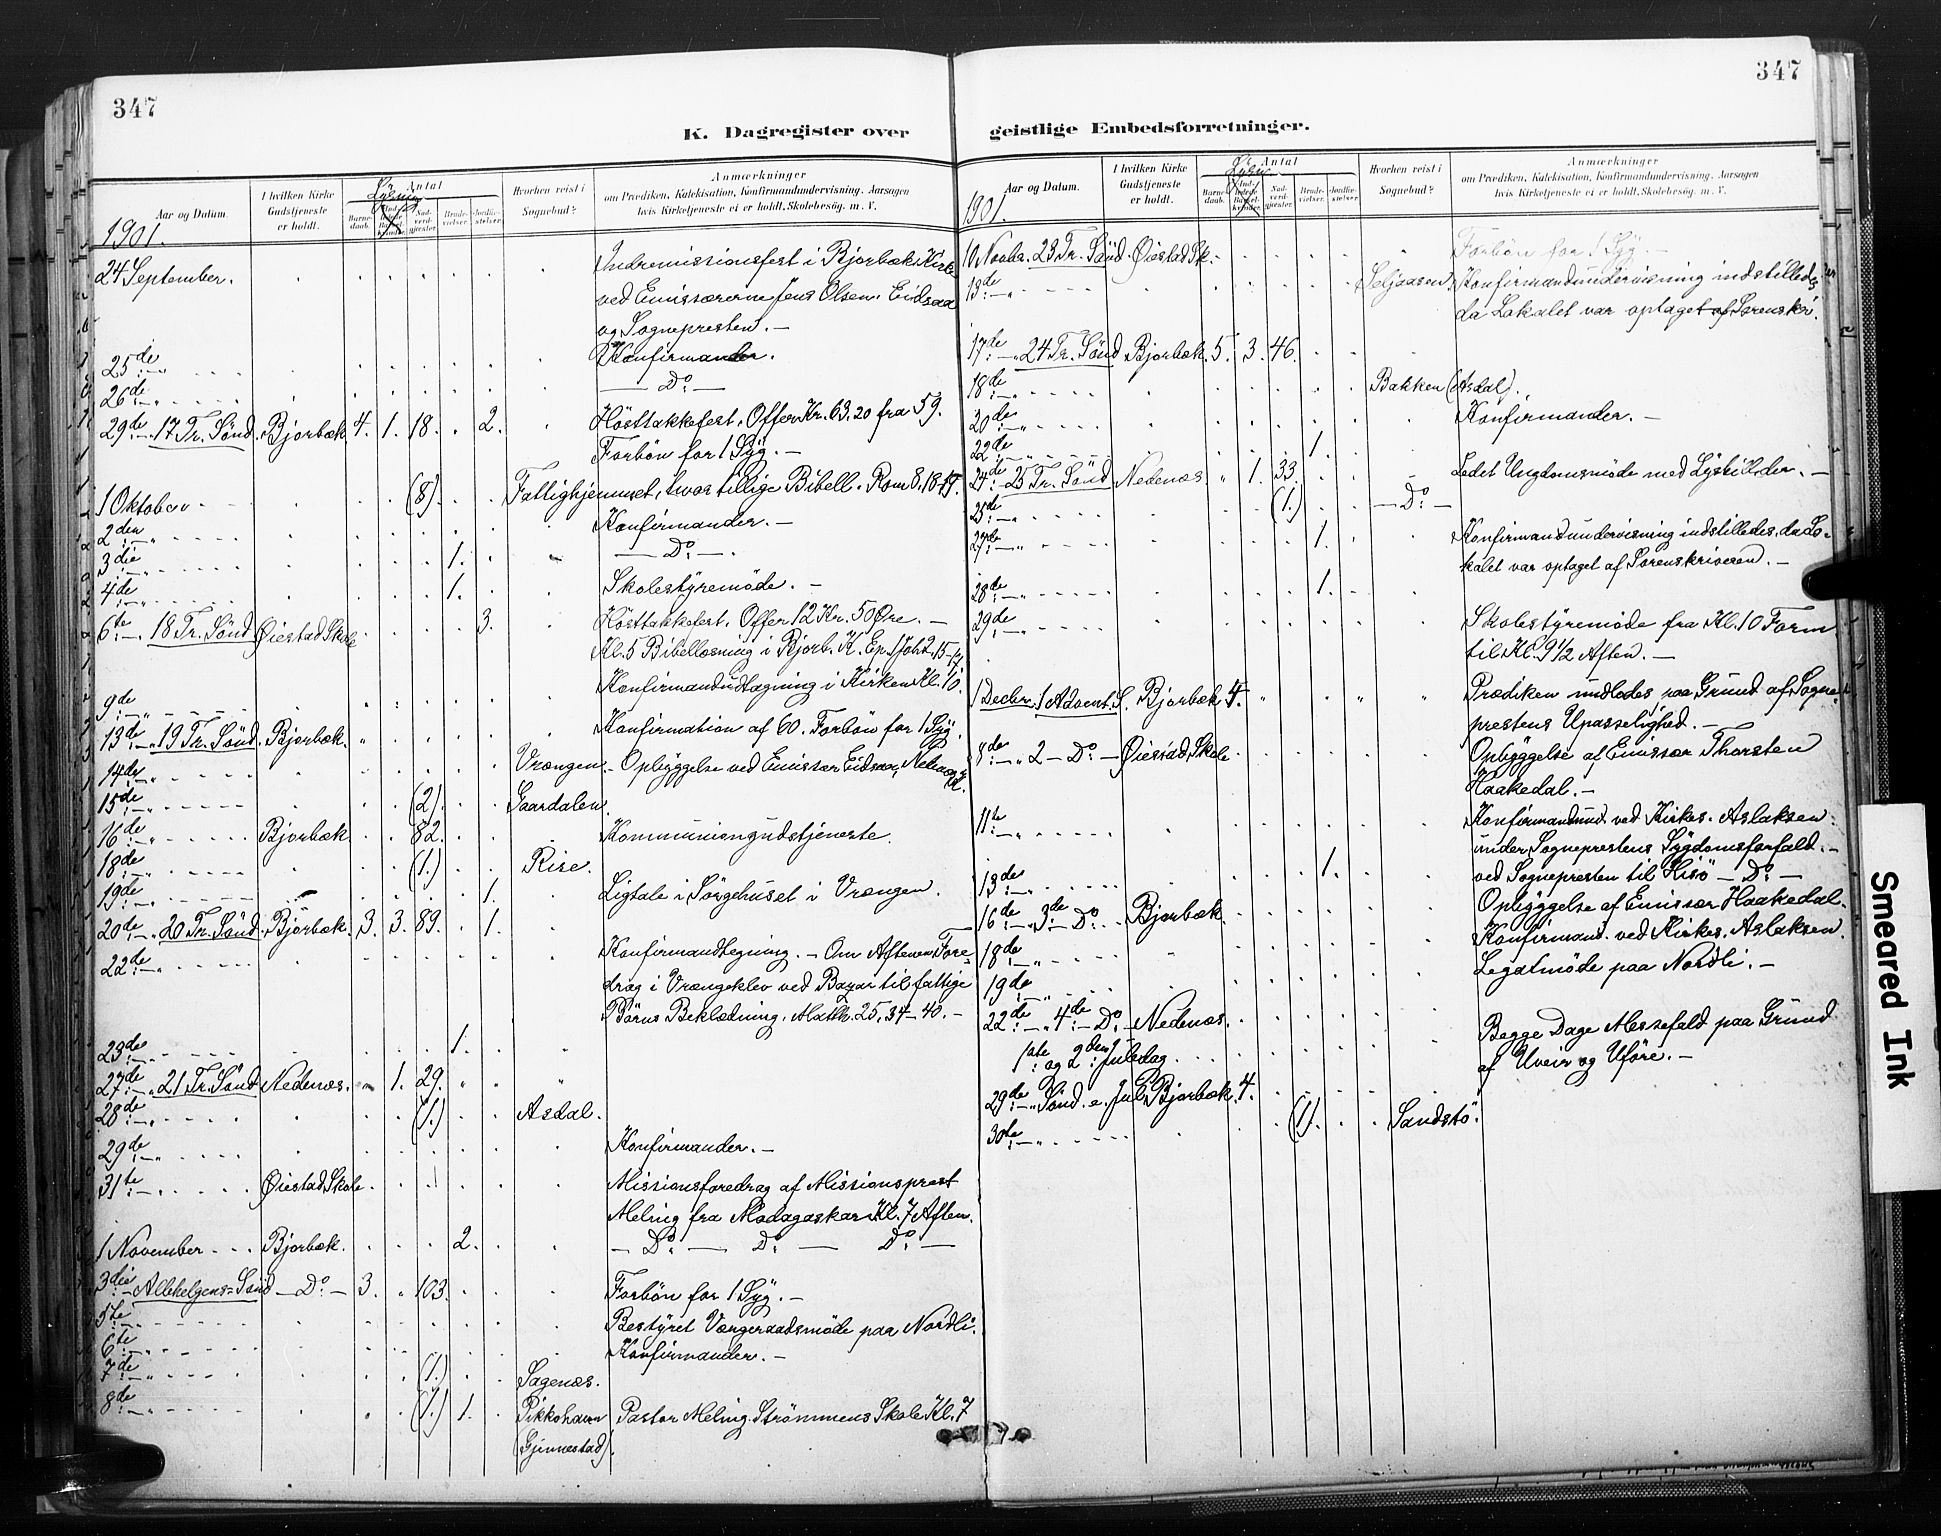 347
K. Dagregister over
Aar og Datum.
I hvilken Kirke Gudstjeneste er holdt.
Lysning
Antal
Barnedaab.
Nadverdgjæster.
Brudevielser.
Jordfæstelser.
Hvorhen reist i Sognebud?
Anmærkninger
om Prædiken, Katekisation, Konfirmandundervisning, Aarsagen
hvis Kirketjeneste ei er holdt, Skolebesøg. m. V.
1901.
24 September. Indremissionsfest i Bjorbæk Kirke
ved Emissærerne Jens Olsen, Eidsaa
og Sognepresten. —
25de Konfirmander.
26de — Do —
29de — 17 Tr. Sønd. Bjorbæk 4. 1. 18. 2. Høsttakkefest. Offer Kr. 63.20 fra 59.
Forbøn for 1 Syg. —
1 Oktober (8). Fattighjemmet, hvor tillige Bibell. Rom 8. 18-
2den Konfirmander. —
3die 1. — Do —
4de 1. Skolestyremøde. —
6te — 18 Tr. Sønd. Øiestad Skole 3. Høsttakkefest. Offer 12 Kr. 50 Øre. —
Kl. 5 Bibellæsning i Bjorb. K. Ep. 1 Joh 2. 15-17.
9de Konfirmandudtagning i Kirken Kl. 10.
13de — 19 Tr. Sønd. Bjorbæk. Konfirmation af 60. Forbøn for 1 Syg.
14de Vrængen. Opbyggelse ved Emissær Eidsaa,
15de (2). Gaardalen.
16de Bjorbæk 82. Kommuniongudstjeneste.
18de (1.) Rise.
19de 1. Ligtale i Sørgehuset i Vrængen.
20de — 20 Tr. Sønd. Bjorbæk. 3. 3. 89. 1.
22de Konfirmandtegning. — Om Aftenen Fore-
drag i Vrængeklev ved Bazar til fattige
Børns Beklædning. Matth. 25, 34-40. —
23de 1.
27de — 21 Tr. Sønd Nedenæs. 1. 29.
28de (1.) Asdal.
29de Konfirmander. —
31te Øiestad Skole. Missionsforedrag af Missionsprest
Meling fra Madagaskar Kl. 7 Aften.
1 November Bjorbæk. 2. — Do — Do — Do —
3die — Allehelgens-Sønd — Do — 3. 103. Forbøn for 1 Syg. —
5te Bestyret Vergeraadsmøde paa Nordli.
6te Konfirmander. —
7de (1.) Sagenæs.
8de (1.) 1. Pikkohavn Pastor Meling. Strømmens Skole Kl. 7
(Gjennestad).
347
geistlige Embedsforretninger.
Aar og Datum.
I hvilken Kirke Gudstjeneste er holdt.
Antal
Barnedaab.
Nadverdgjæster.
Brudevielser.
Jordfæstelser.
Hvorhen reist i Sognebud?
Anmærkninger
om Prædiken, Katekisation, Konfirmandundervisning. Aarsagen
hvis Kirketjeneste ei er holdt. Skolebesøg. m. V.
1901.
10 Novbr. 23 Tr. Sønd. Øiestad Sk. Forbøn for 1 Syg. —
13de Seljaasen. Konfirmandundervisning indstilledes
da Lokalet var optaget af Sorenskr.
17de — 24 Tr. Sønd Bjorbæk 5. 3. 46.
18de Bakken (Asdal).
20de Konfirmander. —
22de 1.
24de — 25 Tr. Sønd Nedenæs 1. 33. Ledet Ungdomsmøde med Lysbilleder. —
25de (1.) — Do —
27de 1. Konfirmandundervisning indstilledes, da Lo-
kalet var optaget af Sorenskriveren. —
28de 1.
29de Skolestyremøde fra Kl. 10 Form
til Kl. 9 1/2 Aften. —
1 Decbr. 1 Advent S. Bjorbæk 4. Prædiken undlodes paa Grund af Sogne-
prestens Upasselighed. —
8de — 2 — Do — Øiestad Skole Opbyggelse af Emissær Thorsten
Haakedal. —
11te Konfirmandund. ved Kirkes. Aslaksen
under Sogneprestens Sygdomsforfald. —
13de 1. ved Sognepresten til Hisø — Do —
16de — 3de — Do Bjorbæk. Opbyggelse af Emissær Haakedal.
18de Konfirmand. ved Kirkes. Aslaksen.
19de Legatmøde paa Nordli. —
22de — 4de — Do — Nedenæs.
1ste og 2den Juledag Begge Dage Messefald paa Grund
af Uveir og Uføre. —
29de — Sønd. e. Jul Bjorbæk. 4.
30te (1). Sandstø.
Smeared Ink